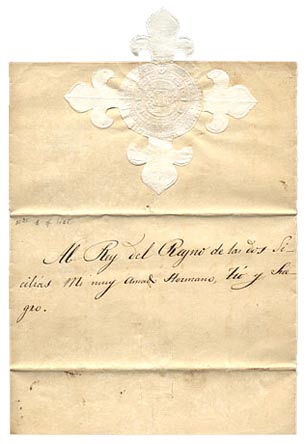 Al Rey del Reyno de las dos Si-
cilias Mi muy Amado Hermano, Tio y Sue-
gro.